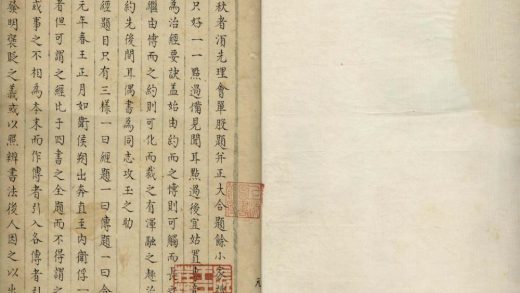 秋者須先理會單股題并正大合題餘小
只好一一點過備見聞耳點過後宜姑置
為治經要訣盖始由約而之博則可觸而長
繼由博而之約則可化而裁之有渾融之趣治
約先後間耳偶書為同志攻玉之助
經題目只有三樣一曰經題一曰傳題一曰合
元年春王正月如衛侯朔出奔直至内衛俘一
者但可謂之經比于四書之全題而不得謂之
或事之不相為本末而作傳者引入各傳者引
發明褒貶之義或以照辨書法後人因之以出